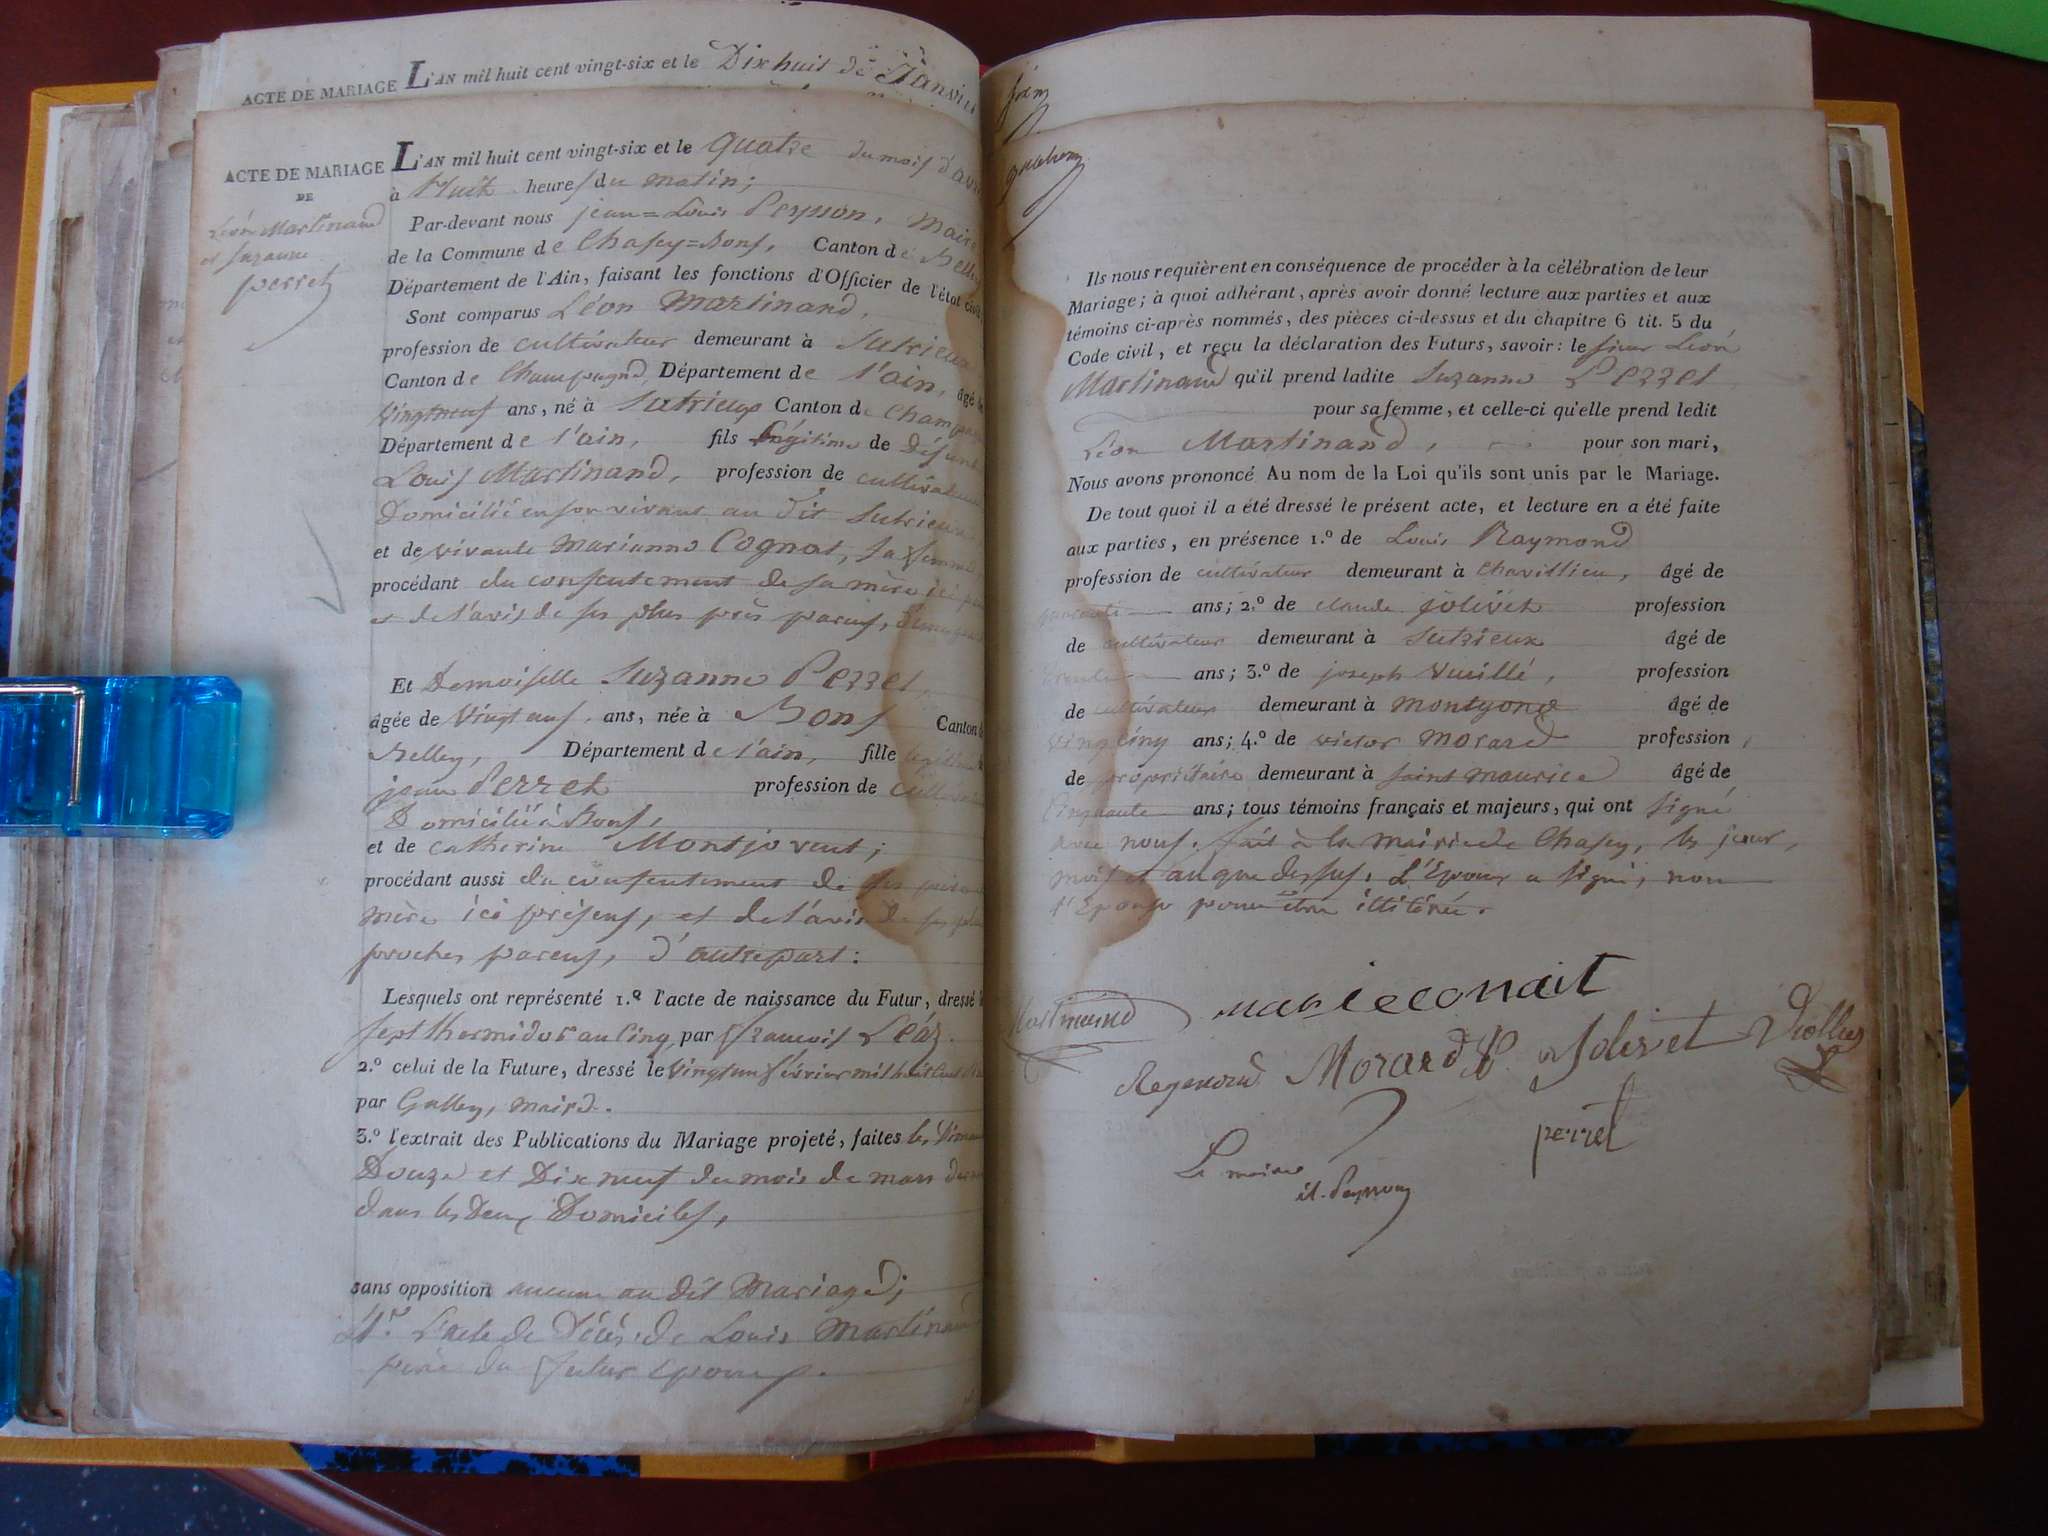 ACTE DE MARIAGE L'AN mil huit cent vingt-six et le Dix huit de Janvier
ACTE DE MARIAGE
DE
Léon Martinand
et Suzanne
perret
L'AN mil huit cent vingt-six et le quatre du mois d'avril
à Huit heures du matin;
Par-devant nous jean=Louis Peysson, Maire
de la Commune de Chasey=Bons, Canton de Belley
Département de l'Ain, faisant les fonctions d'Officier de l'état civil,
Sont comparus Léon Martinand,
profession de cultivateur demeurant à Sutrieux
Canton de Champagne, Département de l'ain, âgé de
vingtneuf ans, né à Sutrieux Canton de Champagne
Département de l'ain, fils légitime de Défunt
Louis Martinand, profession de cultivateur
Domicilié en son vivant au dit Sutrieux
et de vivante Marianne Cognat, sa femme
procédant du consentement de sa mère ici
et de l'avis de ses plus près parens,
Et Demoiselle Suzanne Perret,
âgée de vingt six ans, née à Bons Canton de
Belley, Département de l'ain, fille légitime
jean Perret profession de cultivateur
Domicilié à Bons,
et de catherine Montjovent;
procédant aussi du consentement de ses père et
mère ici présens, et de l'avis de ses plus
proches parens, d'autrepart:
Lesquels ont représenté 1.º l'acte de naissance du Futur, dressé le
sept thermidor an cinq, par francois Léaz.
2.º celui de la Future, dressé le vingt un février mil huit cent
par Galley, maire.
3.º l'extrait des Publications du Mariage projeté, faites les Dimanches
Douze et Dix neuf du mois de mars dernier
dans les Deux Domiciles,
sans opposition aucune au dit Mariage;
4.º L'acte de Décès de Louis Martinand
père du futur Epoux.
Ils nous requièrent en conséquence de procéder à la célébration de leur
Mariage; à quoi adhérant, après avoir donné lecture aux parties et aux
témoins ci-après nommés, des pièces ci-dessus et du chapitre 6 tit. 5 du
Code civil, et reçu la déclaration des Futurs, savoir: le sieur Léon
Martinand qu'il prend ladite Suzanne Perret
pour sa femme, et celle-ci qu'elle prend ledit
Léon Martinand, pour son mari,
Nous avons prononcé Au nom de la Loi qu'ils sont unis par le Mariage.
De tout quoi il a été dressé le présent acte, et lecture en a été faite
aux parties, en présence 1.º de Louis Raymond
profession de cultivateur demeurant à Chavillieu, âgé de
quarante ans; 2.º de claude jolivet profession
de cultivateur demeurant à Sutrieux âgé de
trente ans; 3.º de joseph Vuillé, profession
de cultivateur demeurant à Montgond âgé de
vingcinq ans; 4.º de victor Morard profession
de propriétaire demeurant à Saint maurice âgé de
Cinquante ans; tous témoins français et majeurs, qui ont signé
avec nous. fait à la mairie de Chasey, les jour,
mois et an que dessus, L'Epoux a signé, non
l'Epouse pour être illitérée.
Martinand
marie conait
Raymond Morard Jolivet
perret
Le maire
jl. Peysson